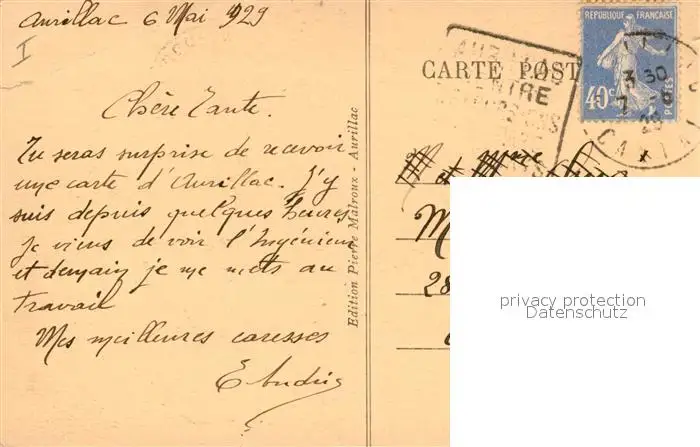 Aurillac 6 Mai 1929
I
Chère Tante.
Tu seras surprise de recevoir
une carte d'Aurillac. J'y
suis depuis quelques heures
Je viens de voir l'Ingénieur
et demain je me mets au
travail
Mes meilleures caresses
Edition Pierre Malroux - Aurillac
CARTE POST
RÉPUBLIQUE FRANÇAISE
40c
POSTES
3 30
CENTRE
et Mme
M
28
privacy protection
Datenschutz